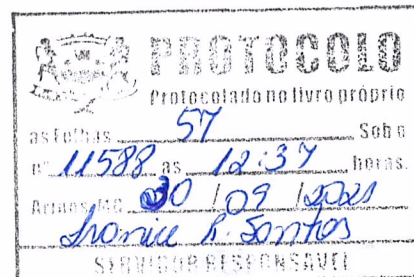 PROTOCOLO
Protocolado no livro próprio
as Folhas 57 Sob o
nº 11588 as 12:37 horas.
Arinos, MG 30 / 09 / 2021
R. Santos
SERVIDOR RESPONSAVEL